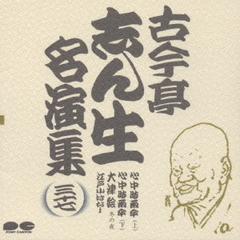 古今亭
志ん生
名演集
三十七
心中時雨傘（上）
心中時雨傘（下）
大津絵 冬の夜
江戸小ばなし
PONY CANYON